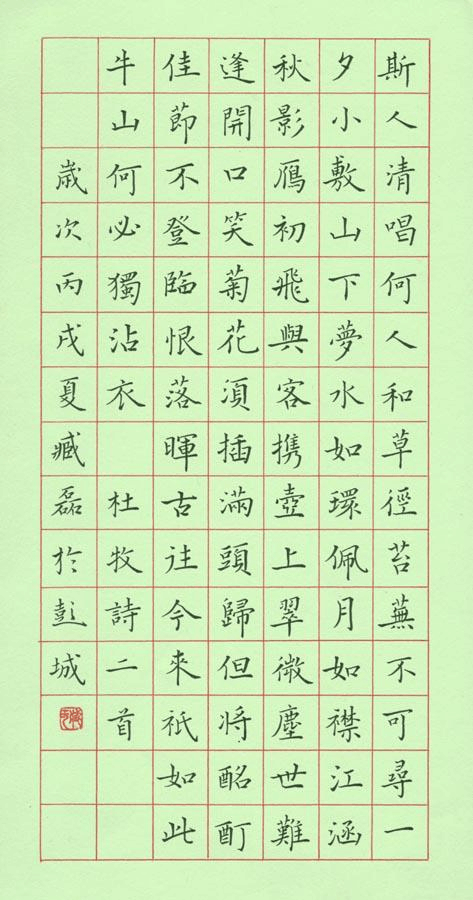 斯人清唱何人和草徑苔蕪不可尋一
夕小敷山下夢水如環佩月如襟江涵
秋影鴈初飛與客携壺上翠微塵世難
逢開口笑菊花須插滿頭歸但将酩酊
佳節不登臨恨落暉古往今來祇如此
牛山何必獨沾衣 杜牧詩二首
歲次丙戌夏臧磊於彭城